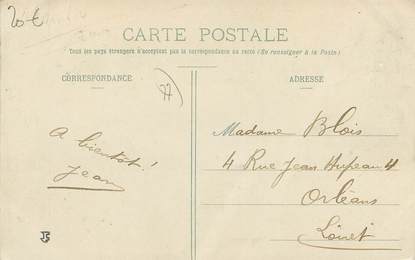 20€
CARTE POSTALE
Tous les pays étrangers n'acceptent pas la correspondance au recto (Se renseigner à la Poste)
CORRESPONDANCE
ADRESSE
77
A bientôt!
Jean
Madame Blois
4 Rue Jean Hupeau 4
Orléans
Loiret